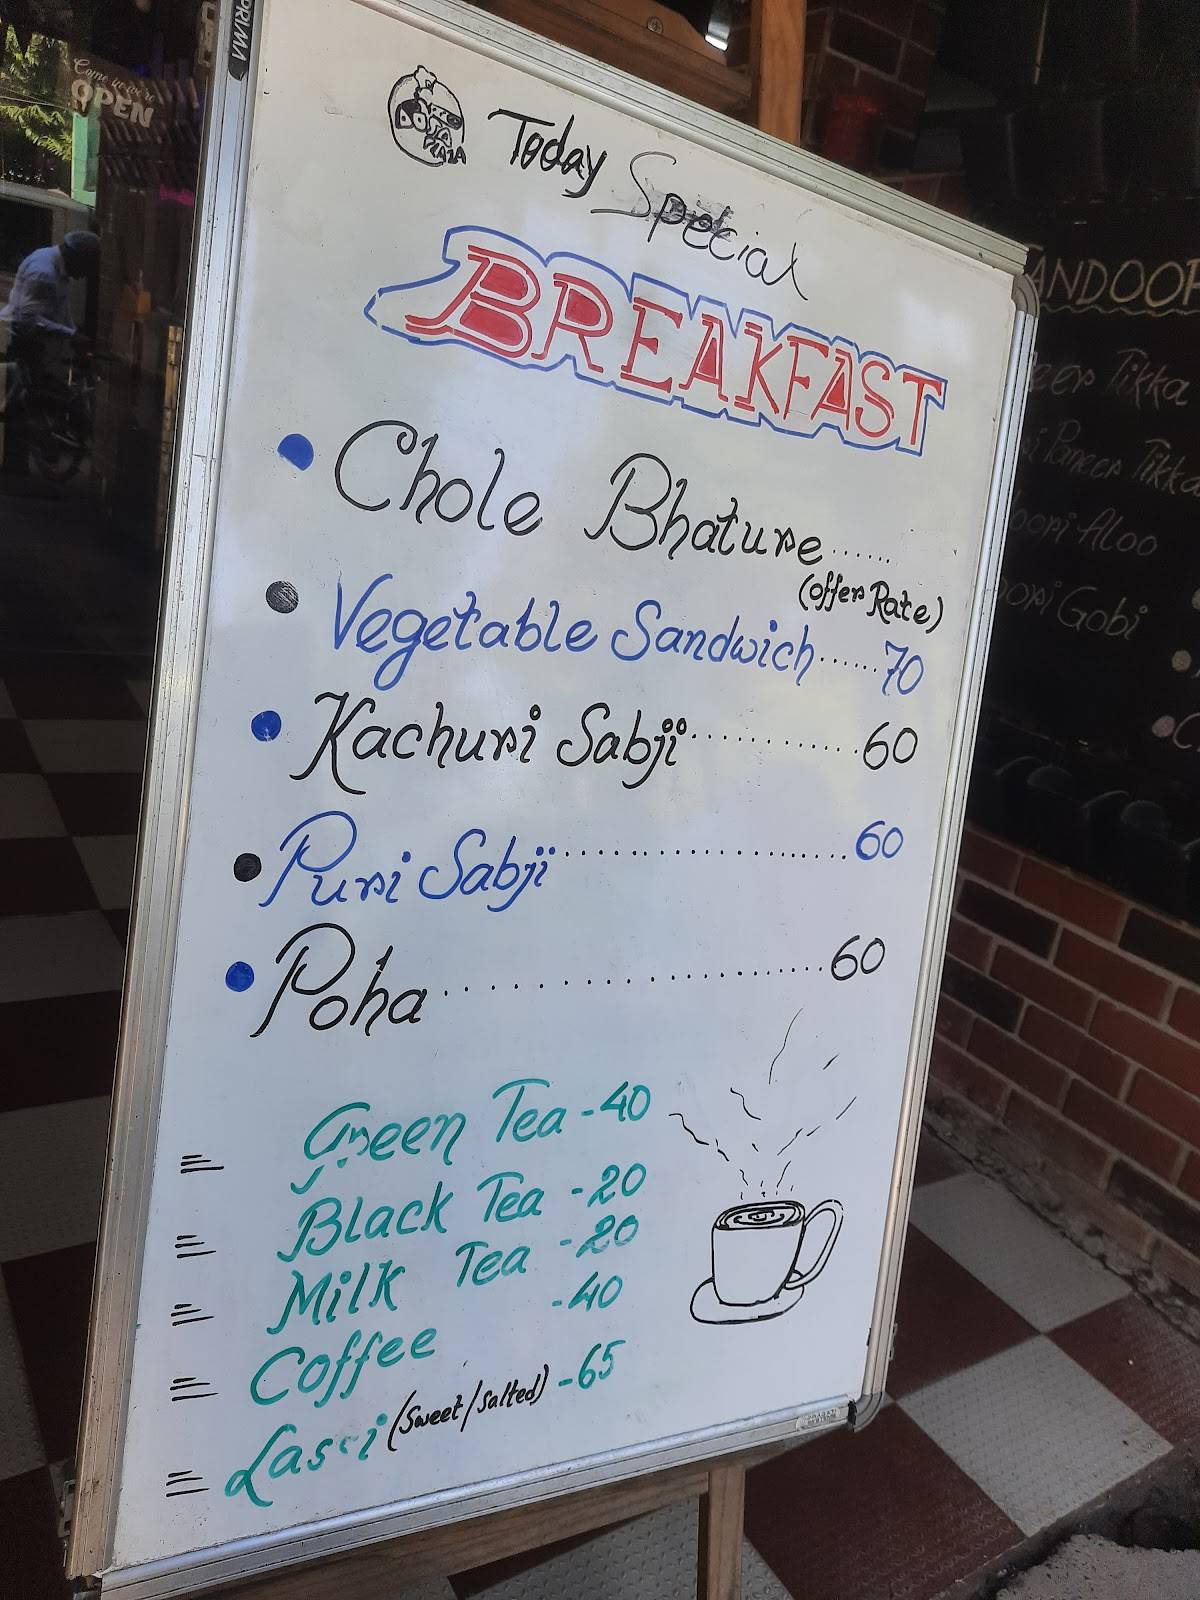 PRIMA
Come in we're
OPEN
DOSA
PLAZA
Today Special
BREAKFAST
Chole Bhature......
(offer Rate)
Vegetable Sandwich......70
Kachuri Sabji............60
Puri Sabji..................60
Poha..................60
Green Tea - 40
Black Tea - 20
Milk Tea - 20
Coffee - 40
Lassi (Sweet/Salted) - 65
ANDOOR
Tikka
Paneer Tikka
Aloo
Gobi